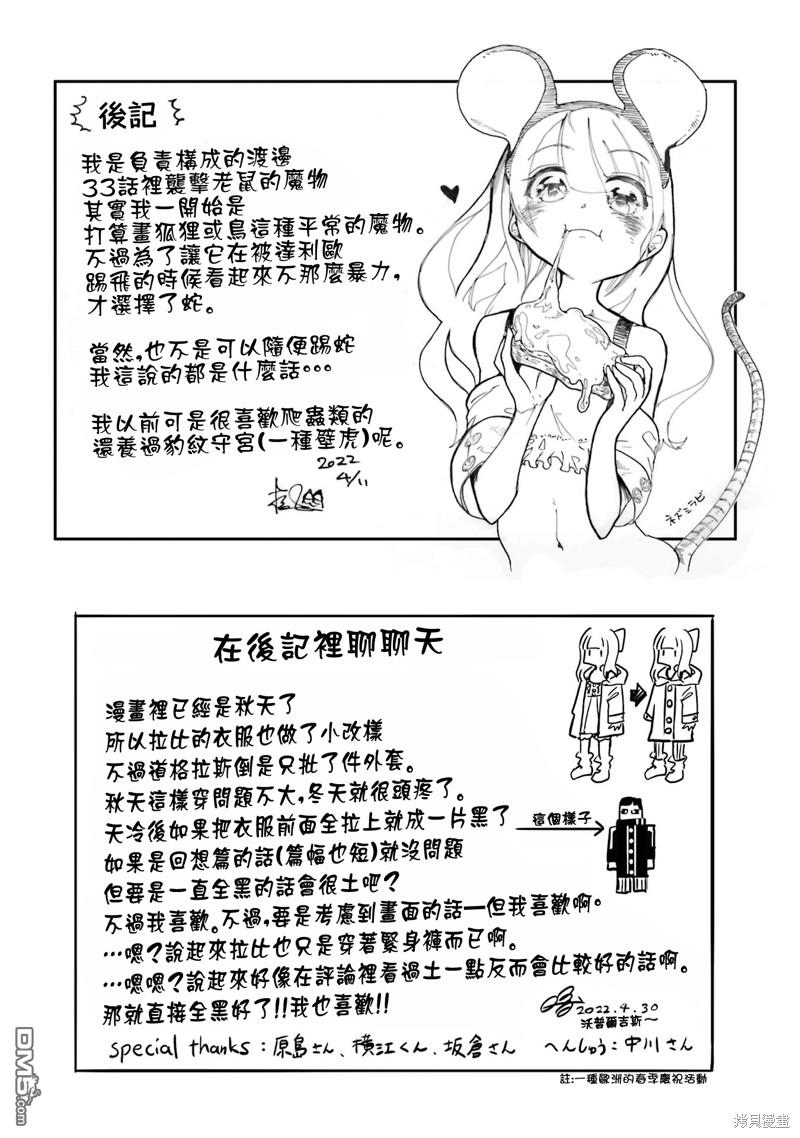 後記
我是負責構成的渡邊
33話裡襲擊老鼠的魔物
其實我一開始是
打算畫狐狸或鳥這種平常的魔物。
不過為了讓它在被達利歐
踢飛的時候看起來不那麼暴力，
才選擇了蛇。
當然,也不是可以隨便踢蛇
我這說的都是什麼話…
我以前可是很喜歡爬蟲類的
還養過豹紋守宮(一種壁虎)呢。
2022
4/11
ネズミラビ
在後記裡聊聊天
漫畫裡已經是秋天了
所以拉比的衣服也做了小改樣
不過道格拉斯倒是只批了件外套。
秋天這樣穿問題不大,冬天就很頭疼了。
天冷後如果把衣服前面全拉上就成一片黑了
這個樣子
如果是回想篇的話(篇幅也短)就沒問題
但要是一直全黑的話會很土吧?
不過我喜歡。不過,要是考慮到畫面的話—但我喜歡啊。
…嗯?說起來拉比也只是穿著緊身褲而已啊。
…嗯嗯?說起來好像在評論裡看過土一點反而會比較好的話啊。
那就直接全黑好了!!我也喜歡!!
2022.4.30
沃普爾吉斯～
special thanks：原島さん、横江くん、坂倉さん へんしゅう：中川さん
註:一種歐洲的春季慶祝活動
DM5.com
拷貝漫畫